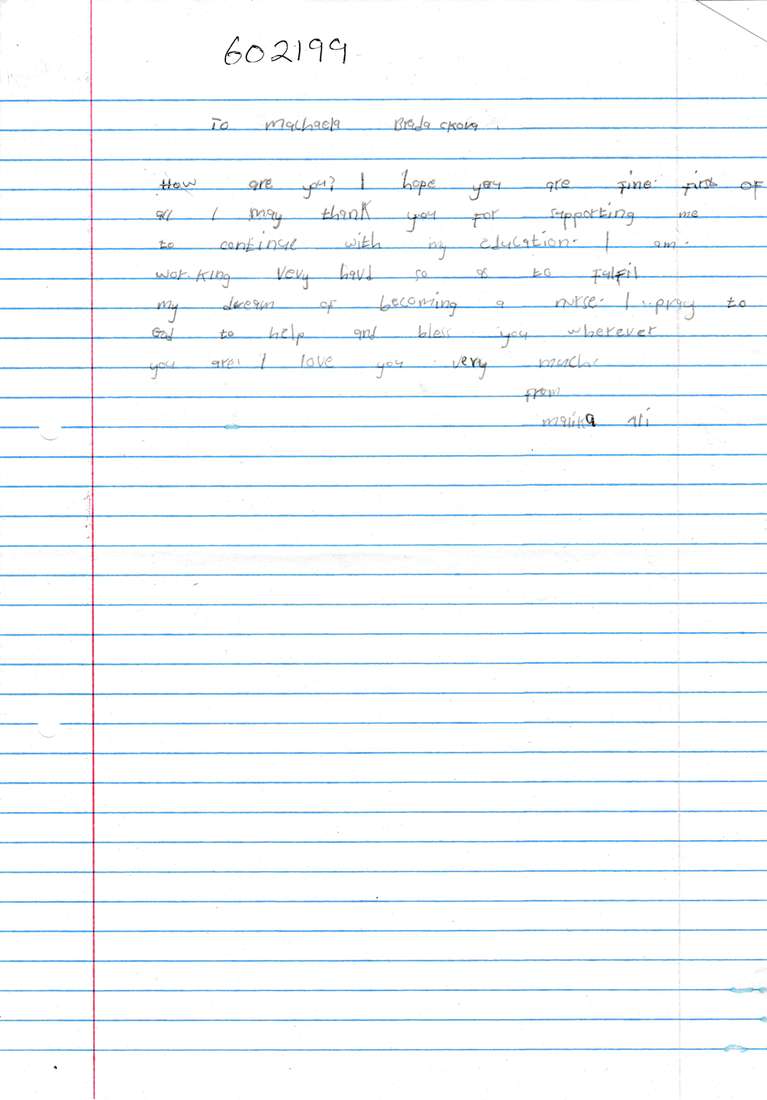 602199
To Machaela Brada ckova.
How are you? I hope you are fine. First of
all I may thank you for supporting me
to continue with my education. I am.
working very hard so as to fulfil
my dream of becoming a nurse. I pray to
God to help and bless you wherever
you are. I love you very much.
from
malika ali